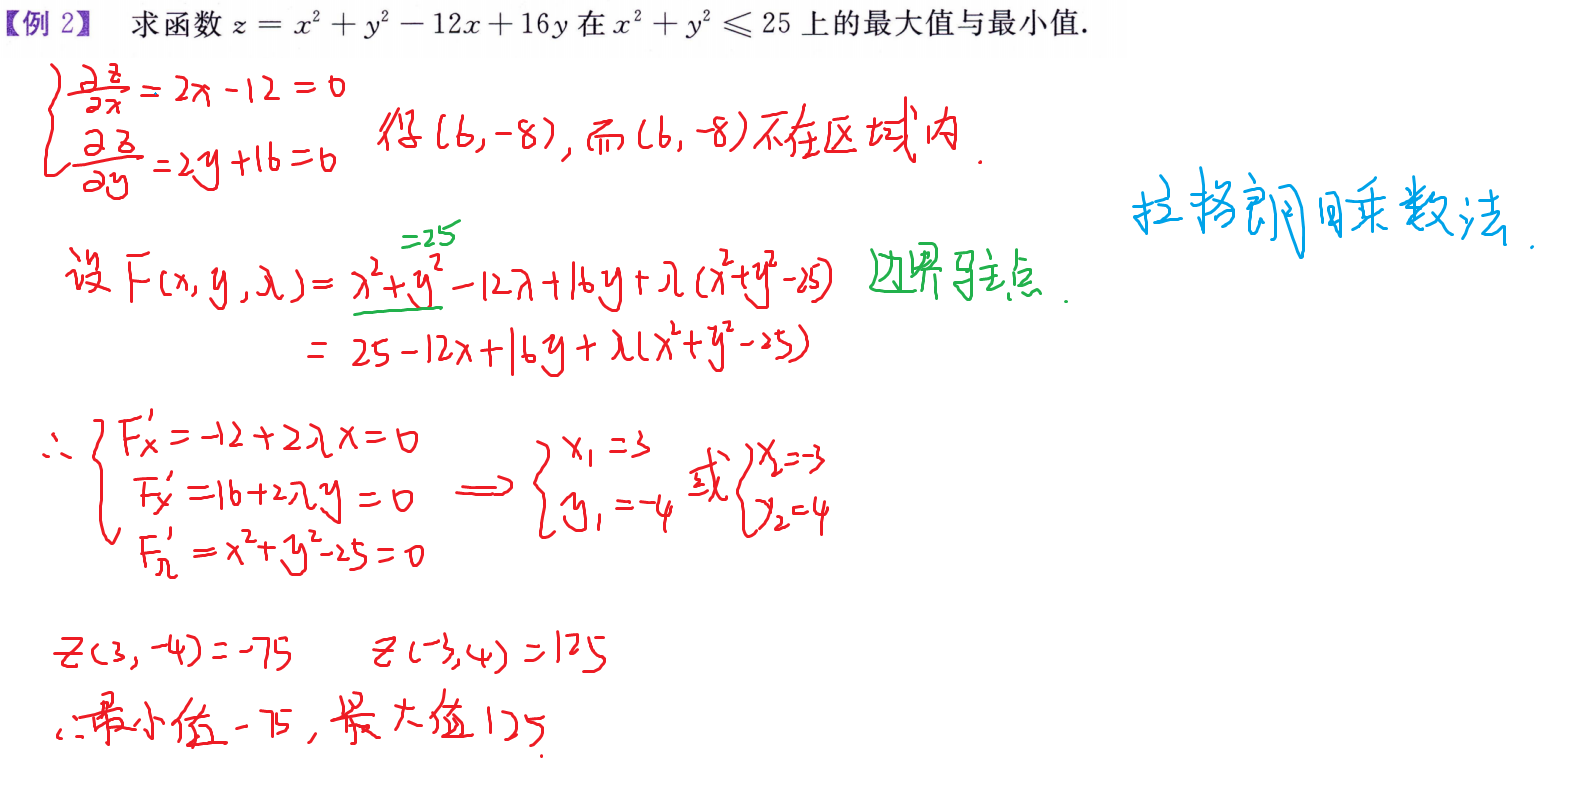 【例 2】 求函数 z = x² + y² − 12x + 16y 在 x² + y² ⩽ 25 上的最大值与最小值.
{ ∂z/∂x = 2x − 12 = 0
∂z/∂y = 2y + 16 = 0
得 (6, −8), 而 (6, −8) 不在区域内.
拉格朗日乘数法.
=25
设 F(x, y, λ) = x² + y² − 12x + 16y + λ(x² + y² − 25) 边界驻点.
= 25 − 12x + 16y + λ(x² + y² − 25)
∴ { F'x = −12 + 2λx = 0
F'y = 16 + 2λy = 0 ⟹ { x₁ = 3 y₁ = −4 或 { x₂ = −3 y₂ = 4
F'λ = x² + y² − 25 = 0
z(3, −4) = −75 z(−3, 4) = 125
∴ 最小值 −75, 最大值 125.